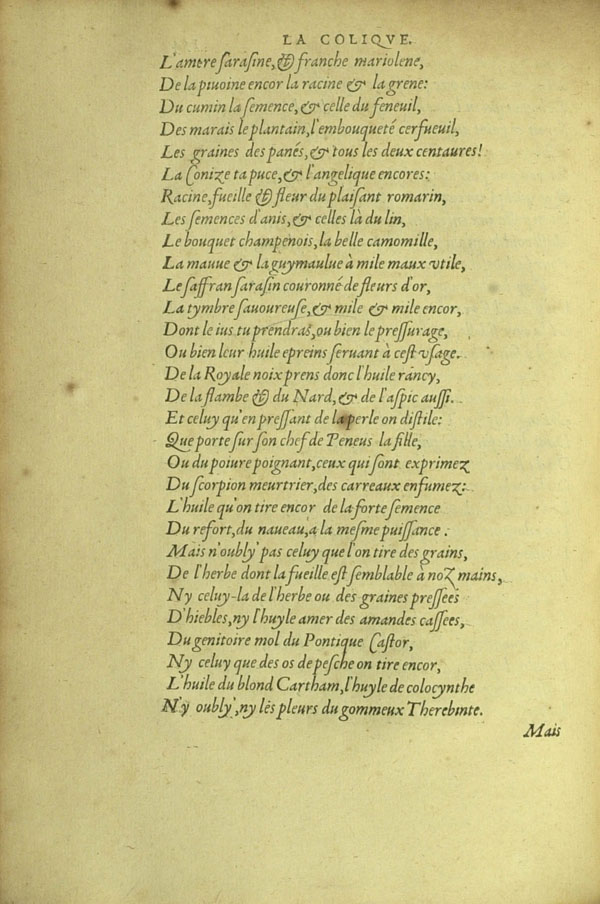 LA COLIQVE.
L'amere ſaraſine, & franche mariolene,
De la piuoine encor la racine & la grene:
Du cumin la ſemence, & celle du feneuil,
Des marais le plantain, l'embouqueté cerfueil,
Les graines des panés, & tous les deux centaures!
La Conize ta puce, & l'angelique encores:
Racine, fueille & fleur du plaiſant romarin,
Les ſemences d'anis, & celles là du lin,
Le bouquet champenois, la belle camomille,
La mauue & la guymaulue à mile maux vtile,
Le ſaffran ſaraſin couronné de fleurs d'or,
La tymbre ſauoureuſe, & mile & mile encor,
Dont le ius tu prendras, ou bien le preſſurage,
Ou bien leur huile epreins ſeruant à ceſt vſage.
De la Royale noix prens donc l'huile rancy,
De la flambe & du Nard, & de l'aſpic auſſi.
Et celuy qu'en preſſant de la perle on diſtile:
Que porte ſur ſon chef de Peneus la fille,
Ou du poiure poignant, ceux qui ſont exprimez
Du ſcorpion meurtrier, des carreaux enfumez:
L'huile qu'on tire encor de la forte ſemence
Du refort, du naueau, a la meſme puiſſance:
Mais n'oubly' pas celuy que l'on tire des grains,
De l'herbe dont la fueille eſt ſemblable à noz mains,
Ny celuy-la de l'herbe ou des graines preſſées
D'hiebles, ny l'huyle amer des amandes caſſees,
Du genitoire mol du Pontique Caſtor,
Ny celuy que des os de peſche on tire encor,
L'huile du blond Cartham, l'huyle de colocynthe
N'y oubly', ny lés pleurs du gommeux Therebinte.
Mais